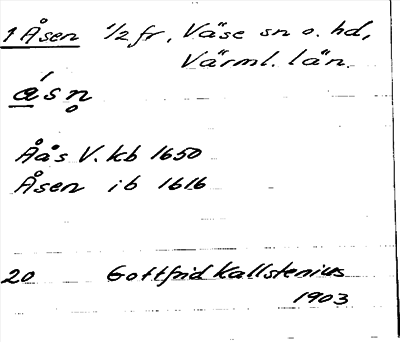 1 Åsen 1/2 fr, Väse sn o. hd,
Värml. län.
ǻsn̥
Åås V. kb 1650
Åsen ib 1616
20 Gottfrid Kallstenius
1903